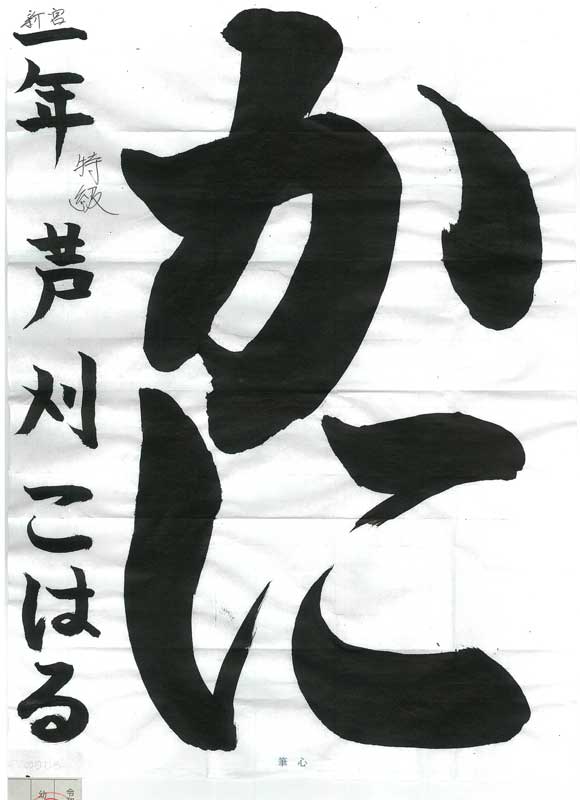 かに
新宮
一年 芦刈こはる
特級
筆心